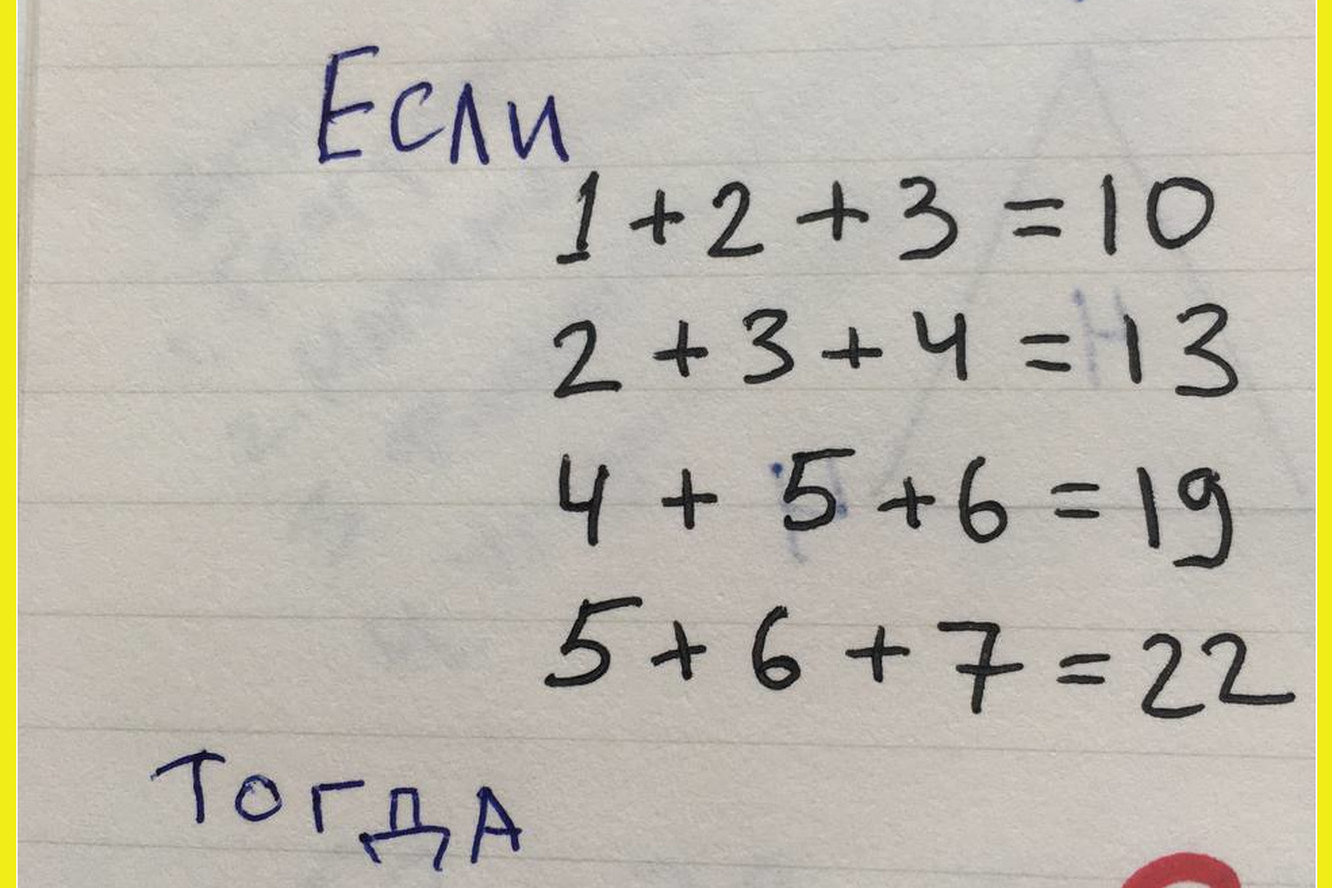 Если
1 + 2 + 3 = 10
2 + 3 + 4 = 13
4 + 5 + 6 = 19
5 + 6 + 7 = 22
Тогда